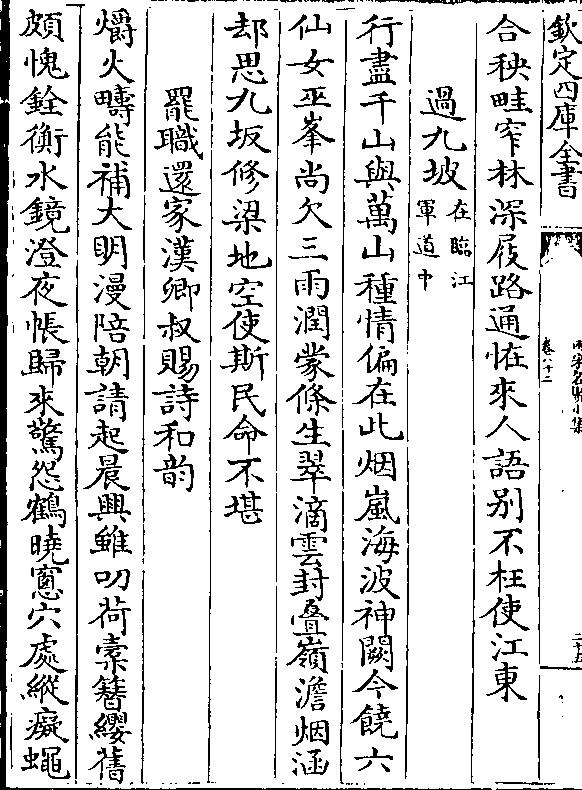 欽定四庫全書
兩宋名賢小集
卷
合秧畦窄林深屐路通恠來人語别不枉使江東
過九坡在臨江軍道中
行盡千山與萬山種情偏在此烟嵐海波神闕今饒六
仙女巫峯尚欠三雨潤蒙條生翠滴雲封疊嶺澹烟涵
却思九坂修梁地空使斯民命不堪
罷職還家漢卿叔賜詩和韵
爝火疇能補大明漫陪朝請起晨興雖叨荷橐簪纓舊
頗愧銓衡水鏡澄夜帳歸來驚怨鶴曉窻穴處縱癡蠅